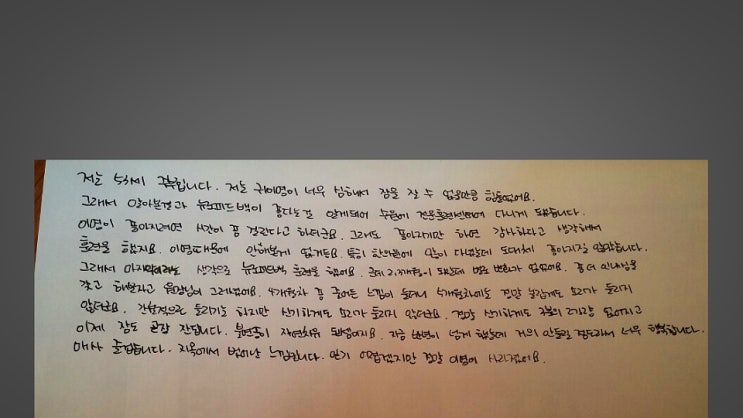 저는 53세 주부입니다. 저는 귀이명이 너무 심해서 잠을 잘 수 없을만큼 힘들었어요.
그래서 알아본결과 뉴로피드백이 좋다는걸 알게되어 수원에 전문훈련센터에 다니게 됐습니다.
이명이 좋아지려면 시간이 좀 걸린다고 하더군요. 그래도 좋아지기만 하면 감사하다고 생각해서
훈련을 했지요. 이명때문에 안해본게 없거든요. 특히 한의원에 많이 다녔는데 도대체 좋아지질 않았습니다.
그래서 마지막이라도 생각으로 뉴로피드백 훈련을 했어요. 근데 2,3개월이 됐는데 별로 변화가 없었어요. 좀더 인내심을
갖고 해보자고 원장님이 그러셨어요. 4개월차 좀 줄어든 느낌이 들더니 5개월차에는 정말 놀랍게도 소리가 들리지
않더군요. 간헐적으로 들리기는 하지만 신기하게도 소리가 들리지 않더군요. 정말 신기하게도 없어지고
이제 잠도 곧잘 잔답니다. 불면증이 자연치유 되었어지요. 지금 넘게 했는데 거의 안들릴 정도라서 너무 행복합니다.
매사 즐겁습니다. 지옥에서 벗어난 느낌입니다. 믿기 어렵겠지만 정말 이명이 사라졌어요.